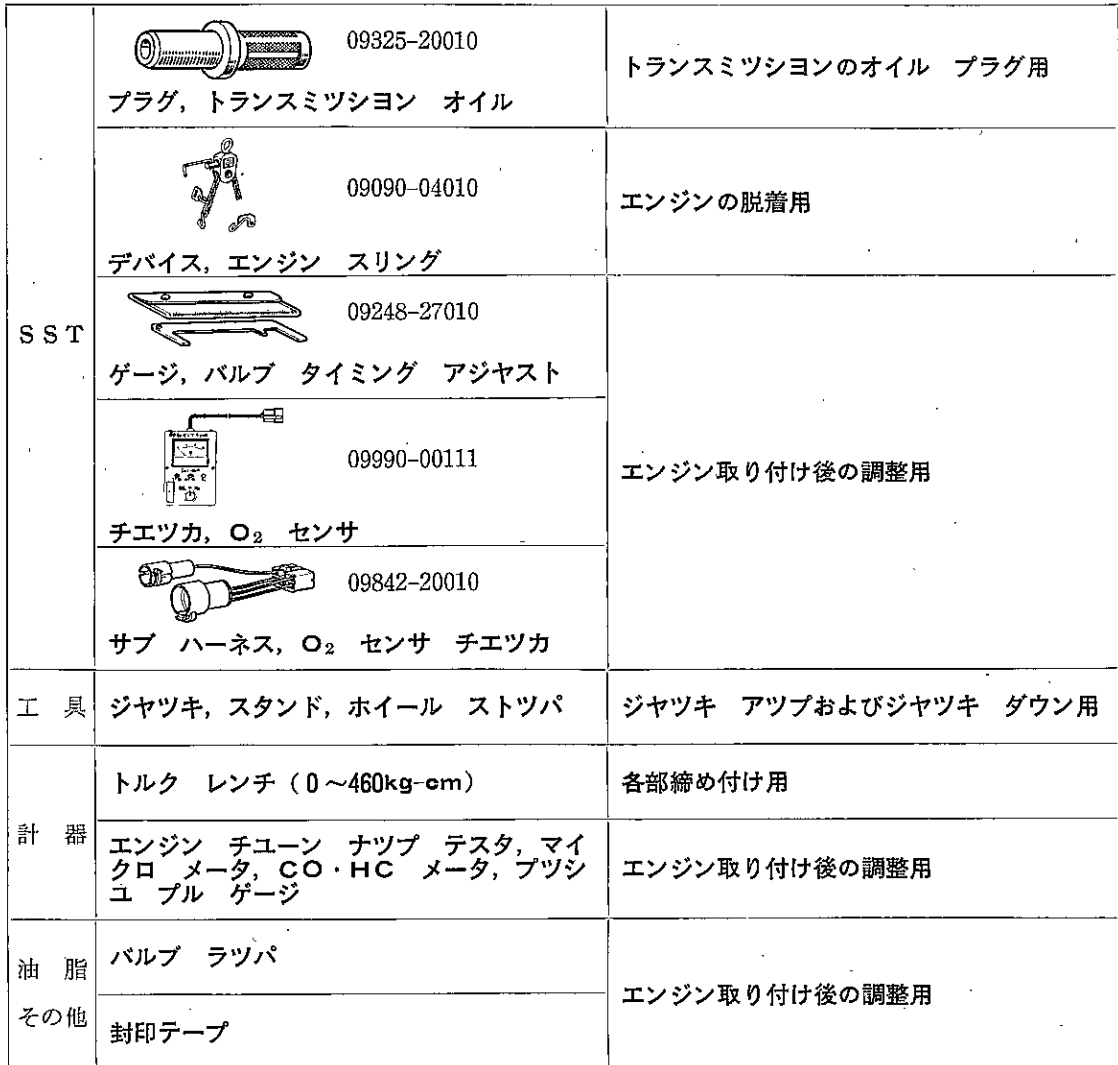 09325-20010
プラグ, トランスミツシヨン オイル
トランスミツシヨンのオイル プラグ用
09090-04010
デバイス, エンジン スリング
エンジンの脱着用
SST
09248-27010
ゲージ, バルブ タイミング アジヤスト
09990-00111
チエツカ, O₂ センサ
エンジン取り付け後の調整用
09842-20010
サブ ハーネス, O₂ センサ チエツカ
工 具
ジヤツキ, スタンド, ホイール ストツパ
ジヤツキ アツプおよびジヤツキ ダウン用
計 器
トルク レンチ (0~460kg-cm)
各部締め付け用
エンジン チユーン ナツプ テスタ, マイ
クロ メータ, CO・HC メータ, プツシ
ユ プル ゲージ
エンジン取り付け後の調整用
油 脂
その他
バルブ ラツパ
封印テープ
エンジン取り付け後の調整用